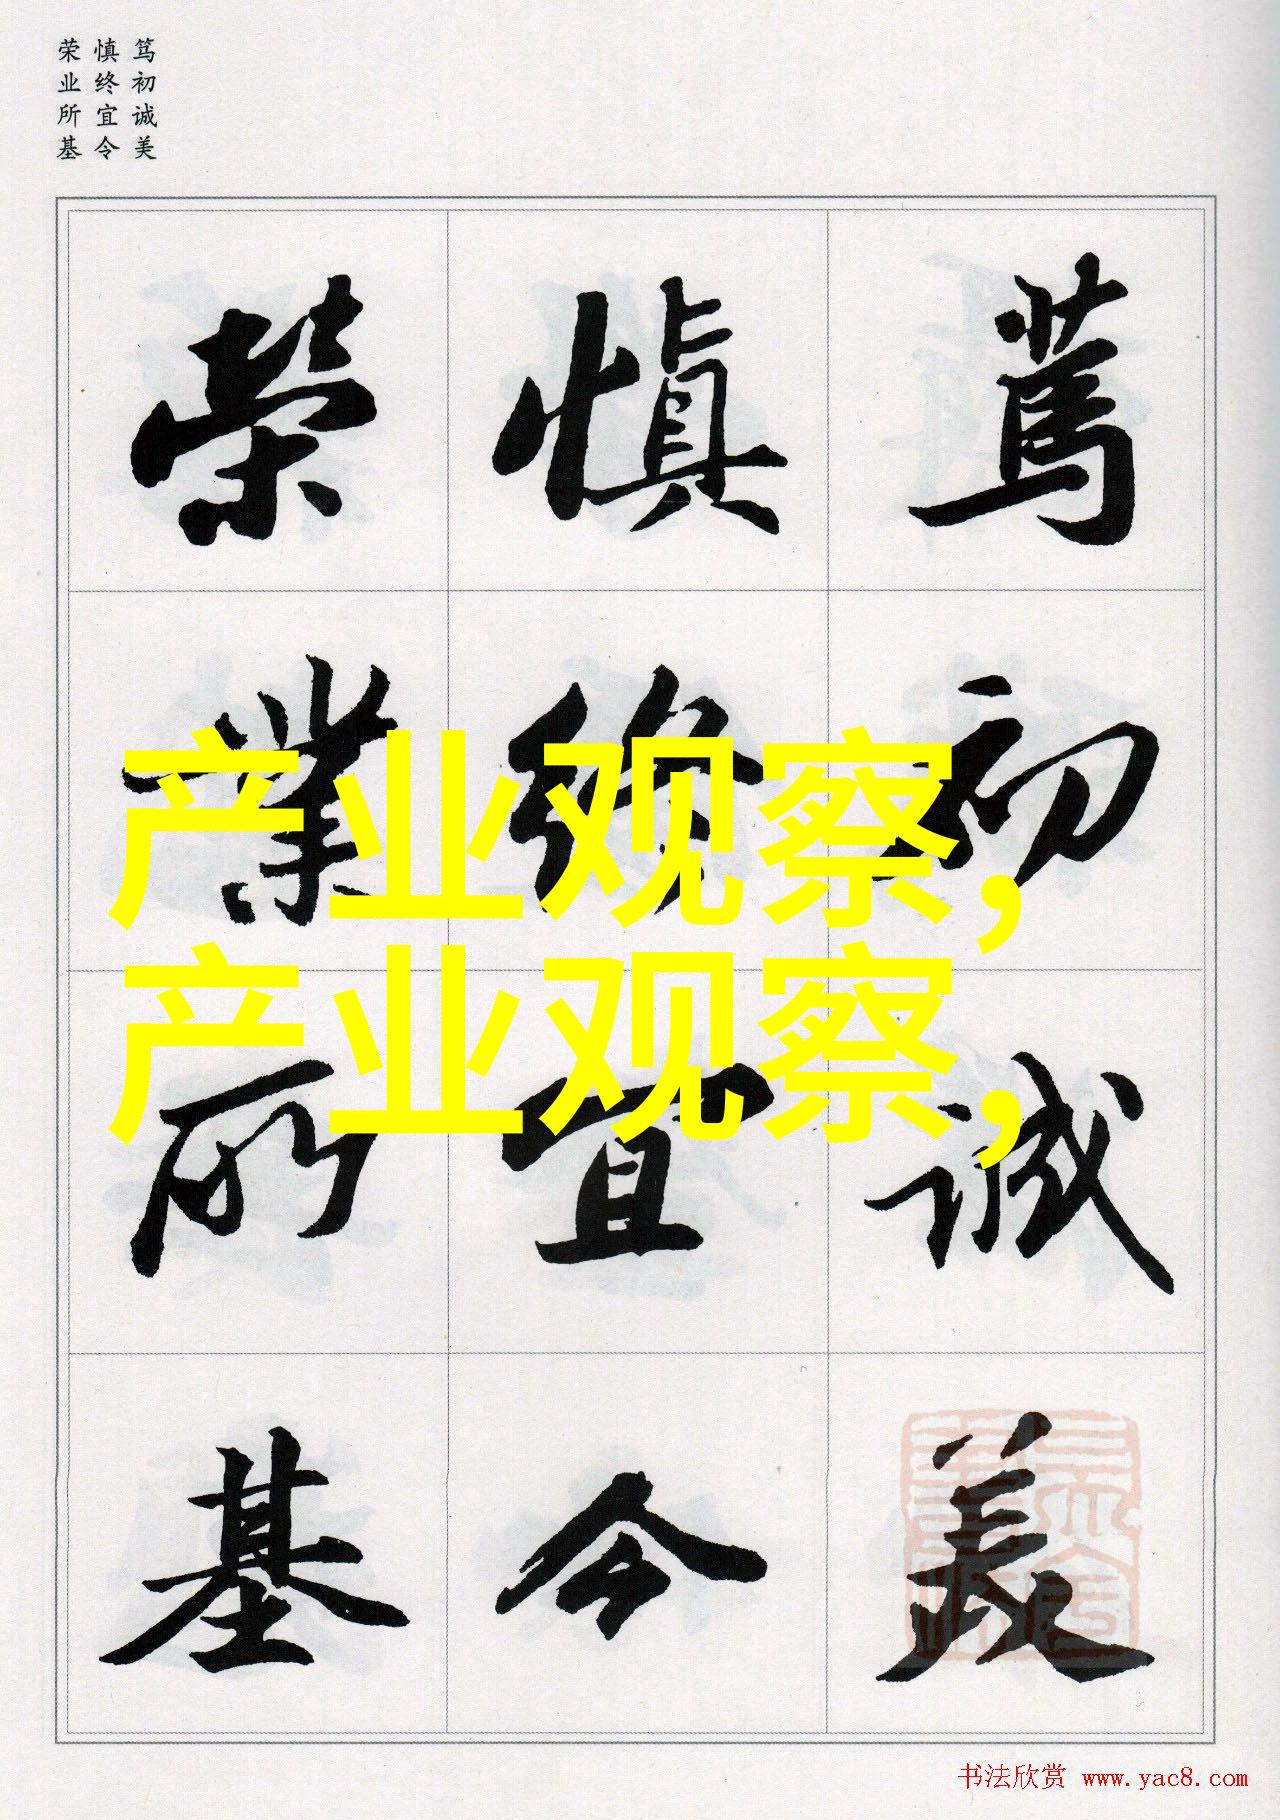 笃初诚美
慎终宜令
荣业所基
篤初誠美
慎終宜令
榮業所基
产业观察,
产业观察,
书法欣赏 www.yac8.com